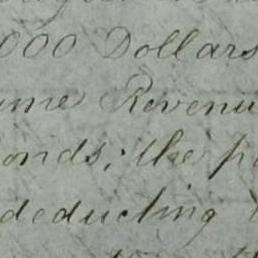 000 Dollars
ume Revenu
onds; the pa
deducting